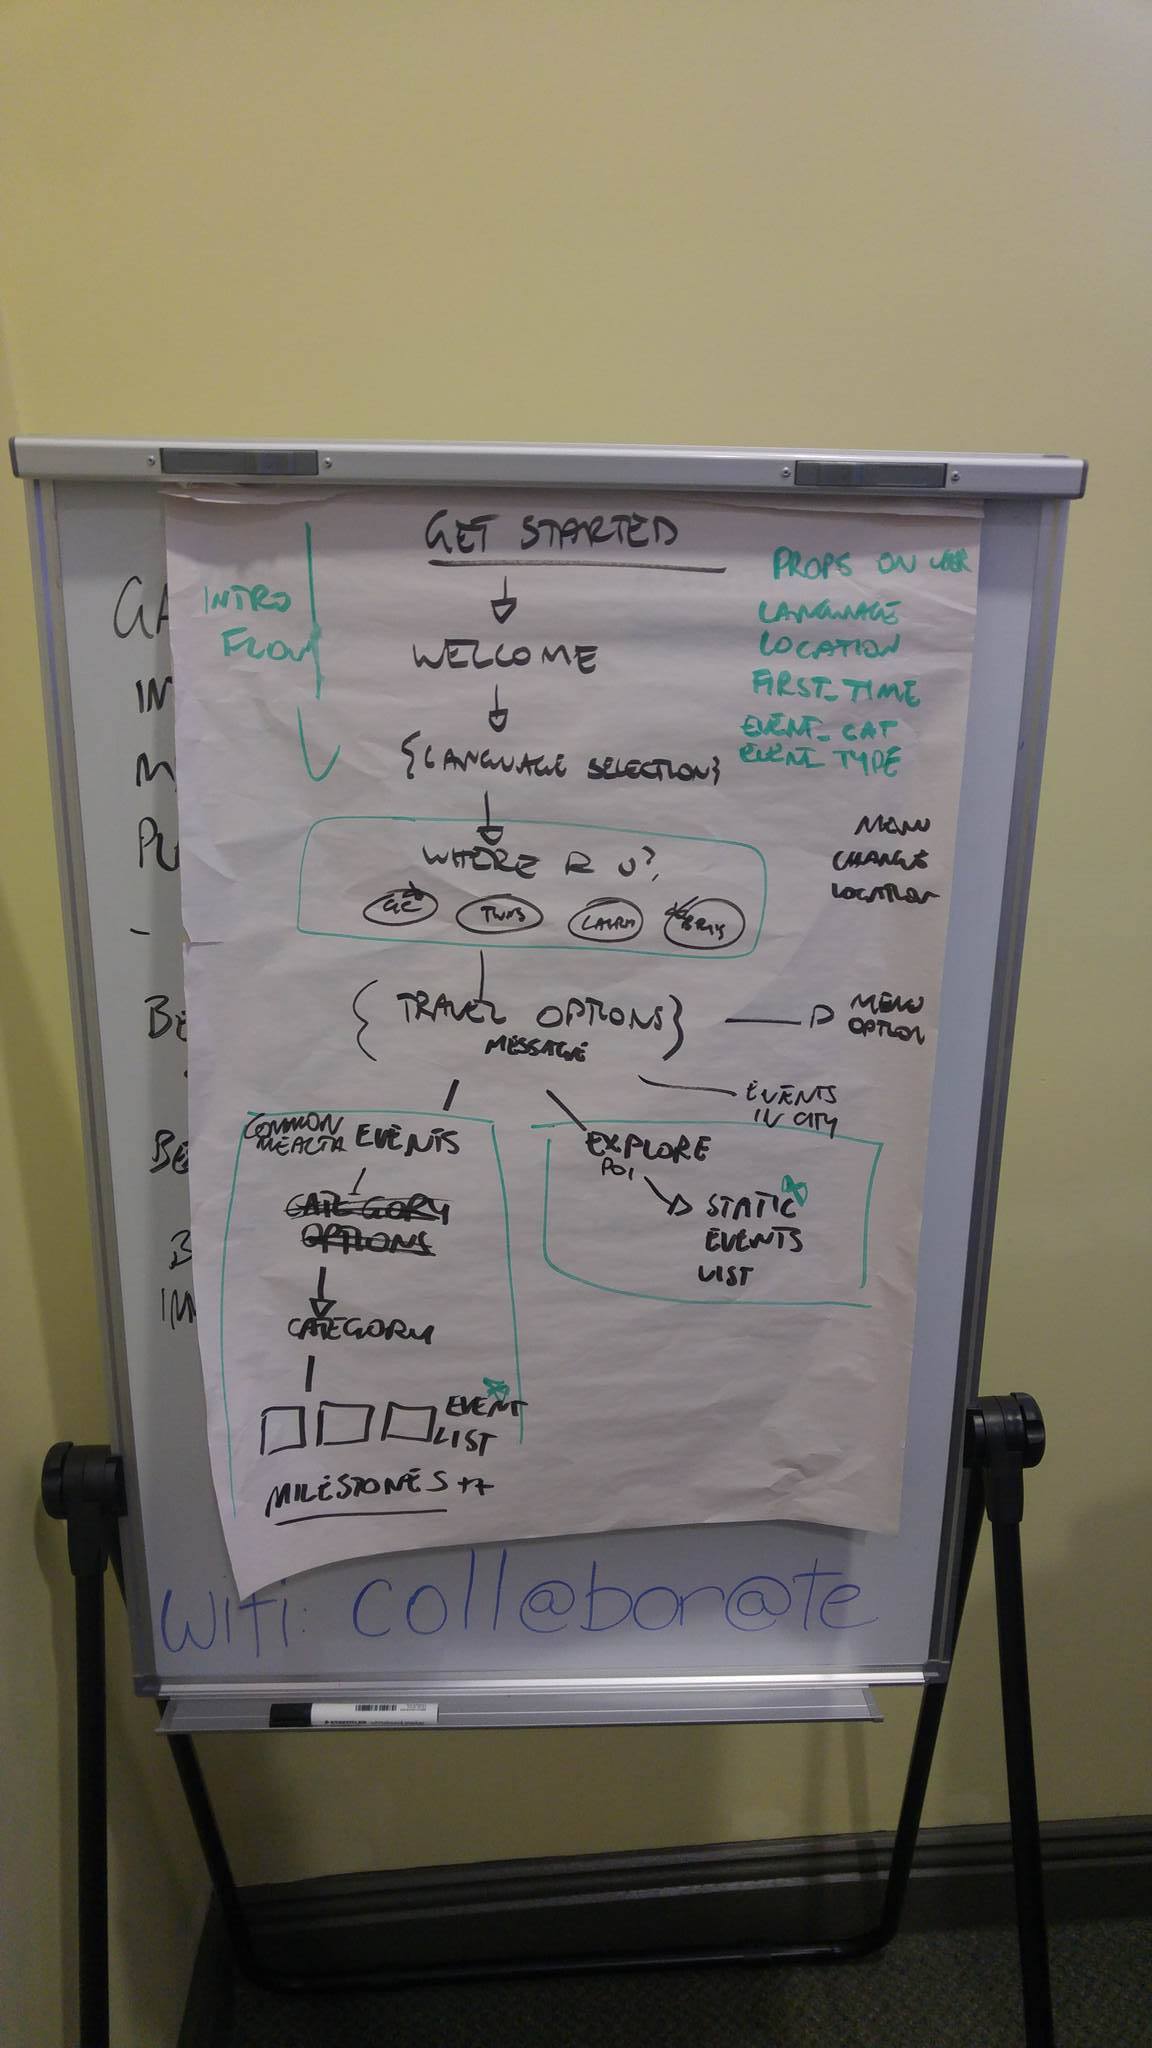 GET STARTED
INTRO
FLOW
WELCOME
{LANGUAGE SELECTION}
PROPS ON USER
LANGUAGE
LOCATION
FIRST_TIME
EVENT_CAT
EVENT_TYPE
WHERE R U?
GC TWNS CAIRN BRIS
MENU
CHANGE
LOCATION
{TRAVEL OPTIONS}
MESSAGE
MENU
OPTION
EVENTS
IN CITY
COMMON
EVENTS
CATEGORY
OPTIONS
CATEGORY
EVENT
LIST
MILESTONES ++
EXPLORE
POI
STATIC
EVENTS
LIST
GA
IN
M
PU
BE
BE
B
IM
Wifi: coll@bor@te